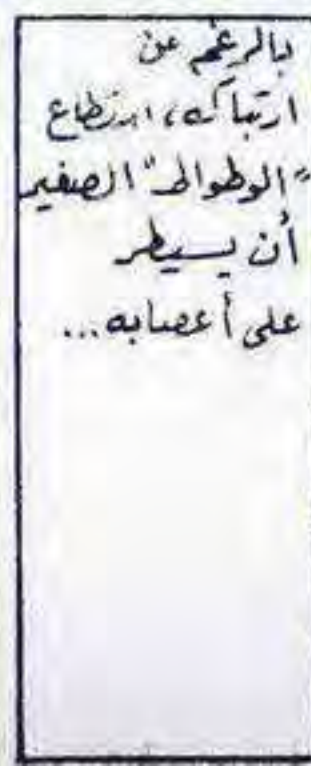 بالرغم من
ارتباكه، استطاع
"الوطواط" الصغير
أن يسيطر
على أعصابه...